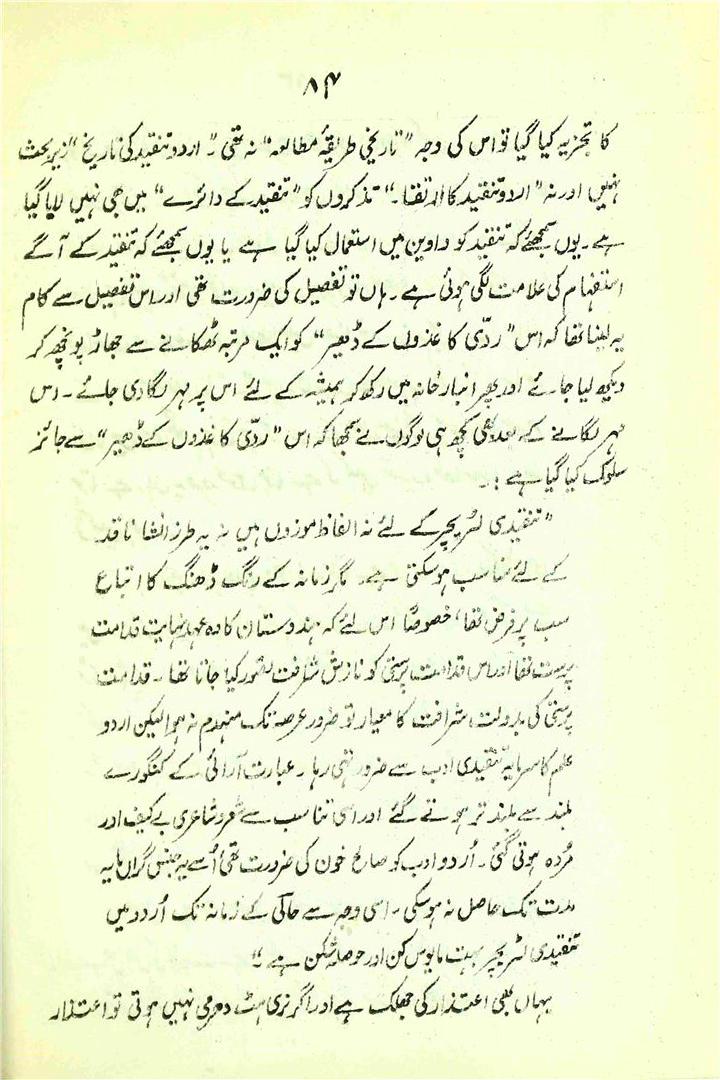 ۸۴
کا تجزیہ کیا گیا تو اس کی وجہ "تاریخی طریقۂ مطالعہ" نہ تھی۔ "اردو تنقید کی تاریخ" زیر بحث
نہیں اور نہ "اردو تنقید کا ارتقا۔" تذکروں کو "تنقید کے دائرے" میں بھی نہیں لایا گیا
ہے۔ یوں سمجھئے کہ تنقید کو واوین میں استعمال کیا گیا ہے یا یوں سمجھئے کہ تنقید کے آگے
استفہام کی علامت لگی ہوئی ہے۔ ہاں تو تفصیل کی ضرورت تھی اور اس تفصیل سے کام
یہ لینا تھا کہ اس "ردّی کاغذوں کے ڈھیر" کو ایک مرتبہ ٹھکانے سے جھاڑ پونچھ کر
دیکھ لیا جائے اور پھر انبار خانہ میں رکھ کر ہمیشہ کے لئے اس پر مہر لگا دی جائے۔ اس
مہر لگانے کے بعد بھی کچھ ہی لوگوں نے سمجھا کہ اس "ردّی کاغذوں کے ڈھیر" سے جائز
سلوک کیا گیا ہے :۔
"تنقیدی لٹریچر کے لئے نہ الفاظ موزوں ہیں نہ یہ طرز انشا ناقد
کے لئے مناسب ہو سکتی ہے۔ مگر زمانہ کے رنگ ڈھنگ کا اتباع
سب پر فرض تھا، خصوصاً اس لئے کہ ہندوستان کا وہ عہد نہایت قدامت
پرست تھا اور اس قدامت پرستی کو نازش شرافت تصور کیا جاتا تھا۔ قدامت
پرستی کی بدولت شرافت کا معیار تو ضرور عرصہ تک منہدم نہ ہوا لیکن اردو
علم کا سرمایہ تنقیدی ادب سے ضرور تہی رہا۔ عبارت آرائی کے کنگورے
بلند سے بلند تر ہوتے گئے اور اسی تناسب سے شعر و شاعری بے کیف اور
مُردہ ہوتی گئی۔ اُردو ادب کو صالح خون کی ضرورت تھی اُسے یہ جنس گراں مایہ
مدت تک حاصل نہ ہو سکی۔ اسی وجہ سے حالی کے زمانہ تک اُردو میں
تنقیدی لٹریچر بہت مایوس کن اور حوصلہ شکن ہے۔"
یہاں بھی اعتذار کی جھلک ہے اور اگر نری ہٹ دھرمی نہیں ہوتی تو اعتذار